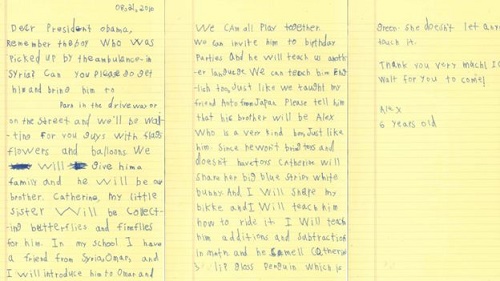 08,21,2016
Dear President obama,
Remember the boy who was
picked up by the ambulance in
Syria? Can you please go get
him and bring him to
Park in the driveway or
on the street and we'll be wai-
ting for you guys with flags
flowers and balloons. We
will give him a
family and he will be our
brother. Catherine, my little
sister will be collect-
ing butterflies and fireflies
for him. In my school I have
a friend from Syria, Omar, and
I will introduce him to Omar and
We can all play together.
we can invite him to birthday
Parties and he will teach us anoth-
er language. We can teach him Eng-
lish too, Just like we taught my
friend Aoto from Japan. Please tell him
that his brother will be Alex
Who is a very kind boy, Just like
him. Since he won't bring toys and
doesn't have toys Catherine will
share her big blue stripy white
bunny. And I will share my
bikke and I will teach him
how to ride it. I will teach
him additions and subtractions
in math and he smell Catherine'
s lip gloss penguin which is
green. She doesn't let any
touch it.
Thank you very mach! I c
wait for you to come!
Alex
6 years old